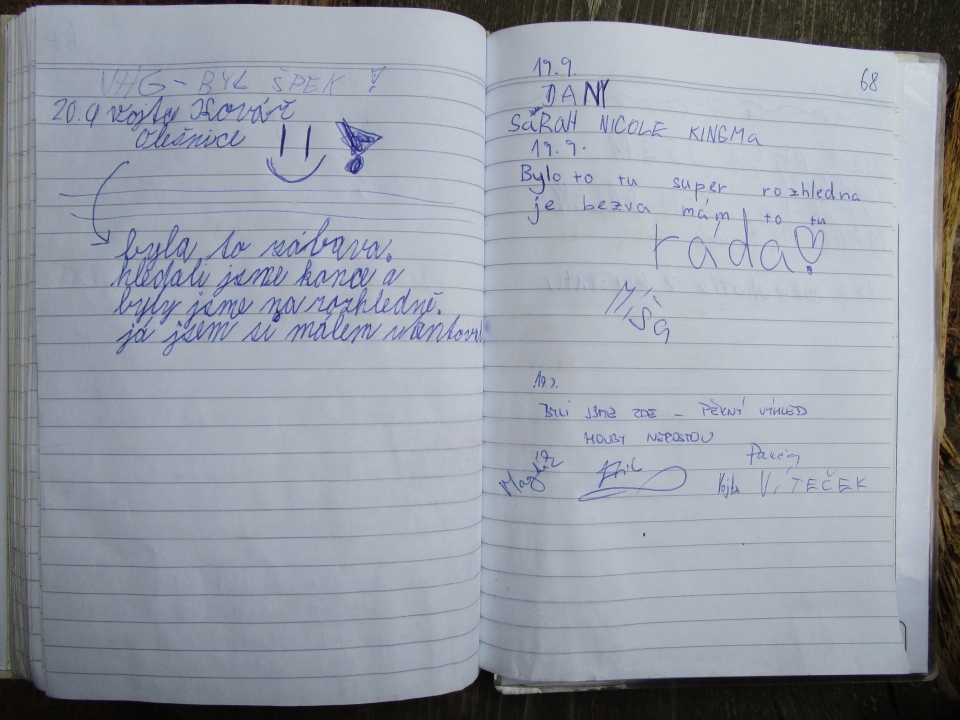 VHG - BYL ŠPEK !
20.9 Vojta Kovář
Olešnice
byla to zábava.
hledali jsme konce a
byly jsme na rozhledně.
já jsem si málem
68
19.9.
DANY
SÁRAH NICOLE KINGMA
19.9.
Bylo to tu super rozhledna
je bezva mám to tu
ráda
Míša
BYLI JSME ZDE - PĚKNÍ VÍHLED
HOUBY NEROSTOU
Vojta VÍTEČEK